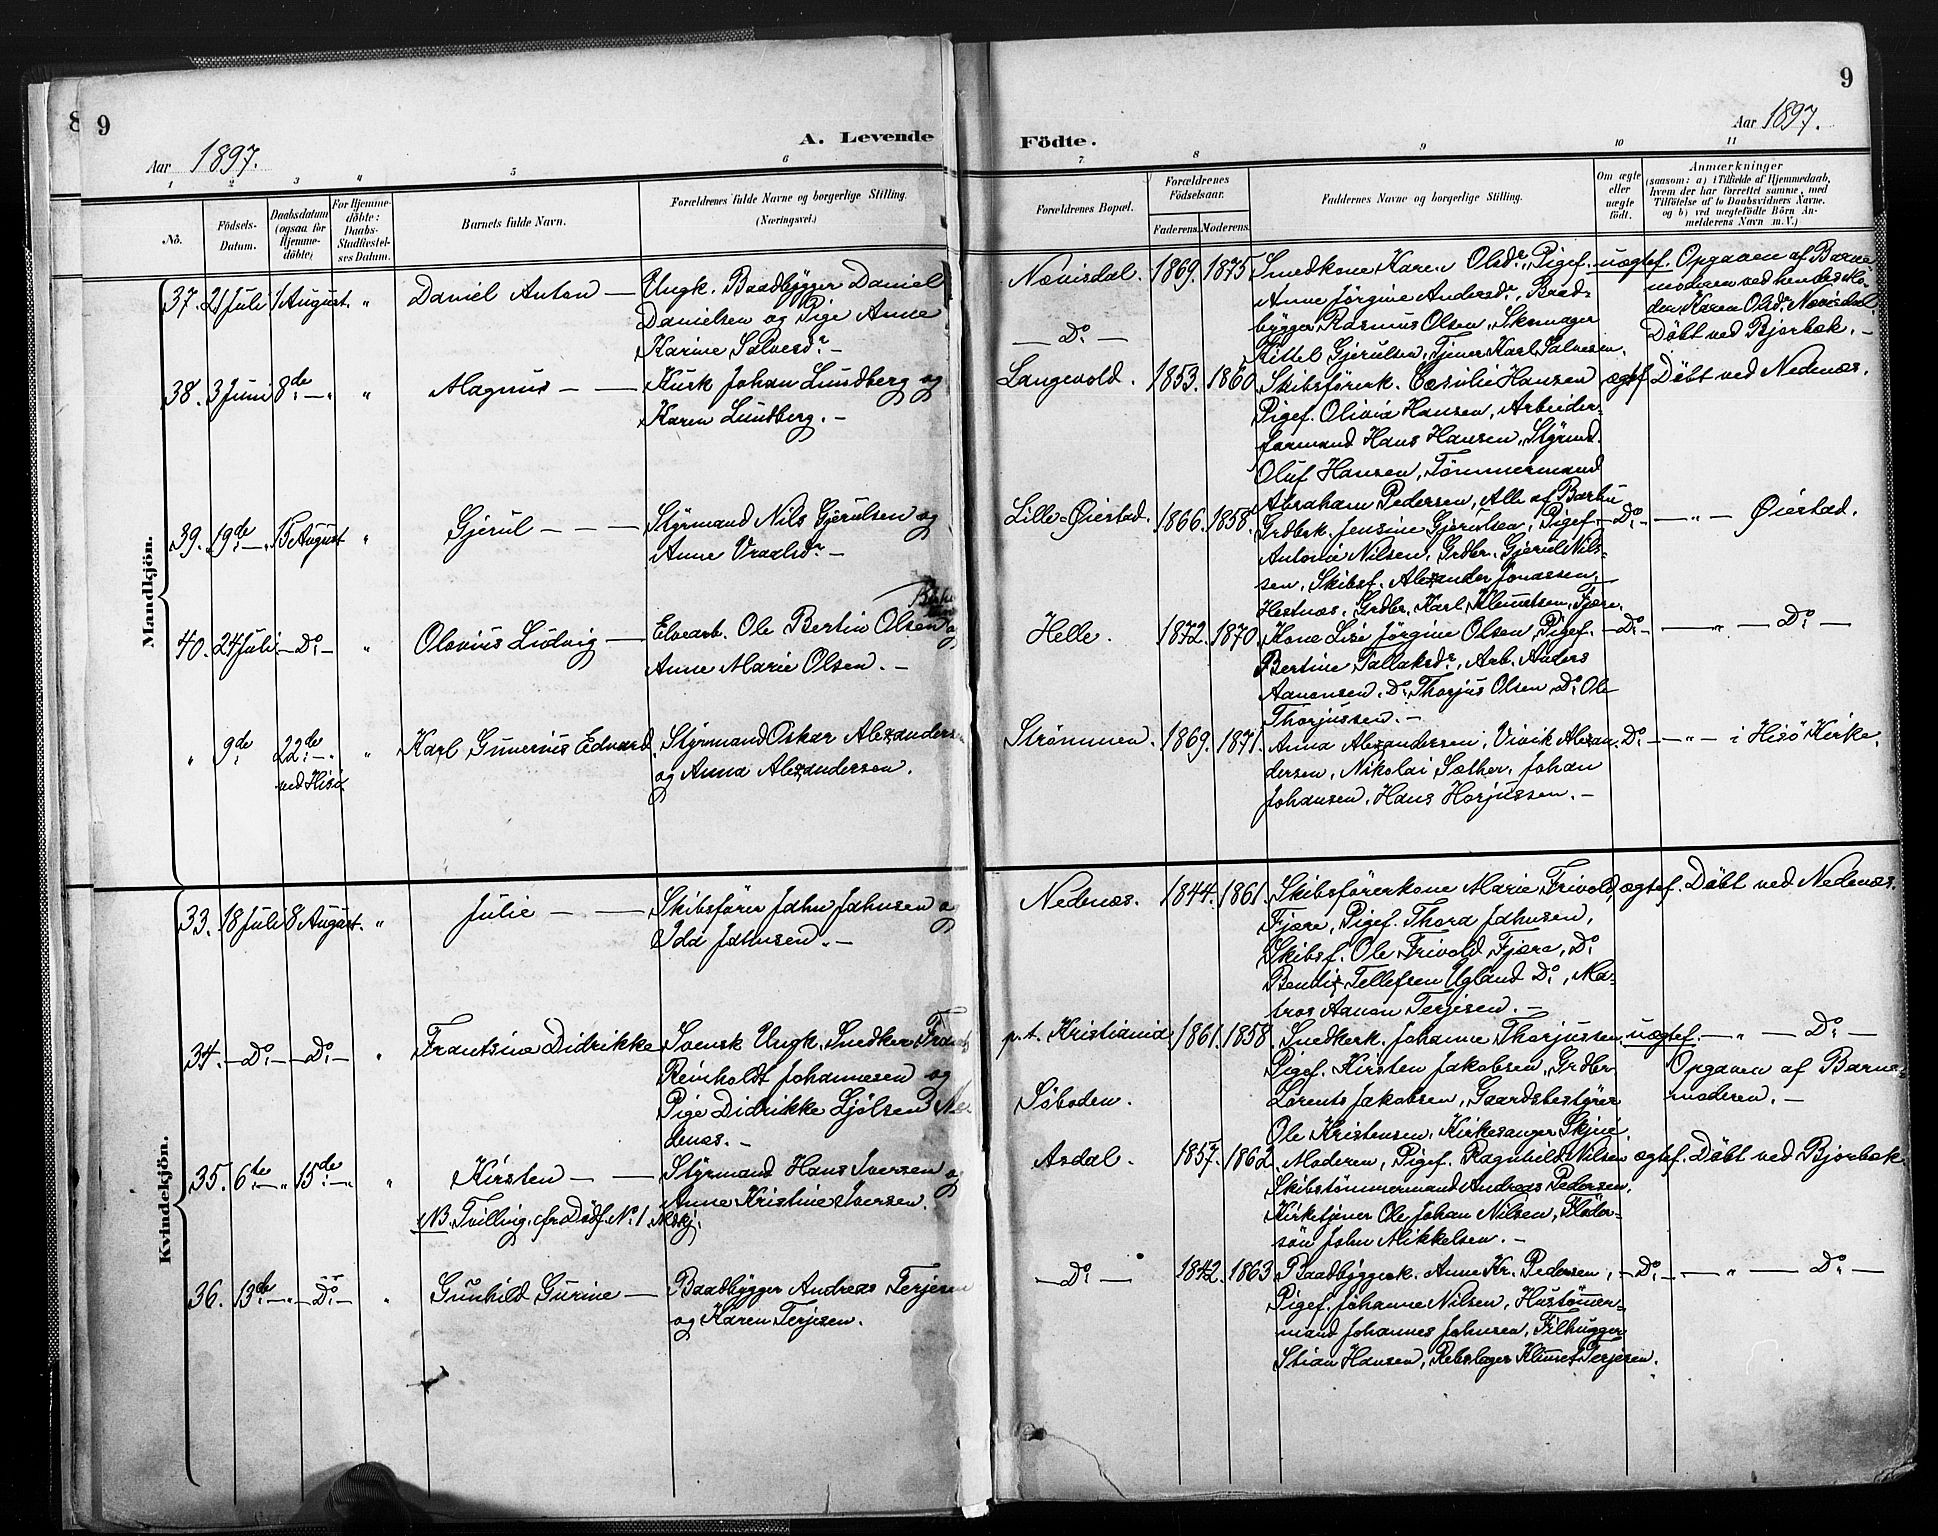 8 9
9
Aar 1897.
A. Levende
Födte.
Aar 1897.
1 2 3 4 5 6 7 8 9 10 11
No.
Födsels-
Datum.
Daabsdatum
(ogsaa for
Hjemme-
döbte)
For Hjemme-
döbte:
Daabs-
Stadfæstel-
ses Datum.
Barnets fulde Navn.
Forældrenes fulde Navne og borgerlige Stilling.
(Næringsvei.)
Forældrenes Bopæl.
Forældrenes
Födselsaar.
Faderens. Moderens.
Faddernes Navne og borgerlige Stilling.
Om ægte
eller
uægte
födt.
Anmærkninger
(saasom: a) i Tilfælde af Hjemmedaab,
hvem der har forrettet samme, med
Tilföielse af to Daabsvidners Navne.
og b) ved uægtefödte Börn An-
melderens Navn m.V.)
Mandkjön.
37. 21 Juli 1 August. " Daniel Anton —
Ungk. Baadbygger Daniel
Danielsen og Pige Anne
Karine Salvesdr. —
Nævisdal.
— Do —
1869. 1875
Smedkone Karen Olsdr., Pigef.
Anne Jörgine Andersdr., Baad-
bygger Rasmus Olsen, Skomager
Kittel Gjerulsen, Tjener Karl Salvesen.
uægtef.
Opgaven af Barne-
moderen ved hendes Mo-
der Karen Olsdr. Nævisdal.
Döbt ved Bjorbæk. —
38. 3 Juni 8de — " Magnus — —
Kusk Johan Lundberg og
Karen Lundberg. —
Langevold. 1853. 1860
Skibsförerk. Cæsilie Hansen
Pigef. Olivia Hansen, Arbeider-
formand Hans Hansen, Styrmd.
Oluf Hansen, Tömmermand
Abraham Pedersen, Alle af Barbu
ægtef. Döbt ved Nedenæs.
39. 19de — " 15 August " Gjerul — — —
Styrmand Nils Gjerulsen og
Anne Vraalsdr. —
Lille-Øiestad. 1866. 1858.
Grdbrk. Jensine Gjerulsen, Pigef.
Antonie Nilsen, Grdbr. Gjerul Nils-
sen, Skibsf. Alexander Jonassen,
Hestnæs, Grdbr. Karl Klemetsen, Fjære.
— Do — — " — Øiestad.
40. 24 Juli — Do — " Olovius Ludvig —
Elvearb. Ole Bertin Olsen og
Anne Marie Olsen. —
Helle. 1872. 1870
Kone Lise Jörgine Olsen, Pigef.
Bertine Tallaksdr., Arb. Anders
Aanonsen, Do Thorjus Olsen Do Ole
Thorjussen. —
— Do — — " — Do —
" 9de 22de — " " Karl Gunerius Edvard
ved Hisö
Styrmand Oskar Alexandersen
og Anna Alexandersen.
Strömmen. 1869. 1871.
Anna Alexandersen, Vivik Alexan-
dersen, Nikolai Sæther, Johan
Johansen, Hans Horjussen. —
Do — — " — i Hisö Kirke.
Kvindekjön.
33. 18 Juli 8 August. " Julie — —
Skibsförer John Johnsen og
Ida Johnsen. —
Nedenæs. 1844. 1861.
Skibsförerkone Marie Frivold,
Fjære, Pigef. Thora Johnsen,
Skibsf. Ole Frivold Fjære, Do
Bendix Tellefsen Ugland Do, Ma-
tros Aanon Terjesen. —
ægtef. Döbt ved Nedenæs.
34. — Do — — Do — " Frantsine Didrikke
Svensk Ungk. Snedker Frants
Reinholdt Johannesen og
Pige Didrikke Ljölsen Ne-
denæs. —
p. t. Kristiania
Söboden.
1861. 1858.
Smedkerk. Johanne Thorjussen
Pigef. Kirsten Jakobsen, Grdbr.
Lorents Jakobsen, Gaardsbestyrer
Ole Kristensen, Kirkesanger Skjeie.
uægtef. — " — Do —
Opgaven af Barne-
moderen. —
35. 6te — " 15de — " " Kirsten — —
NB. Tvilling, cfr Dödf. No 1. Mskj.
Styrmand Hans Iversen og
Anne Kristine Iversen.
Asdal. 1857. 1862.
Moderen, Pigef. Ragnhild Nilsen
Skibstömmermand Andreas Pedersen,
Kirketjener Ole Johan Nilsen, Flöder-
sön John Mikkelsen. —
ægtef. Döbt ved Bjorbæk
36. 13de — " — Do — " Gunhild Gurine —
Baadbygger Andreas Terjesen
og Karen Terjesen.
— Do — 1842. 1863
Baadbyggerk. Anne Kr. Pedersen,
Pigef. Johanne Nilsen, Hustömer-
mand Johannes Johnsen, Filhugger
Stian Hansen, Rebslager Klemet Terjesen.
— Do — — " — Do —